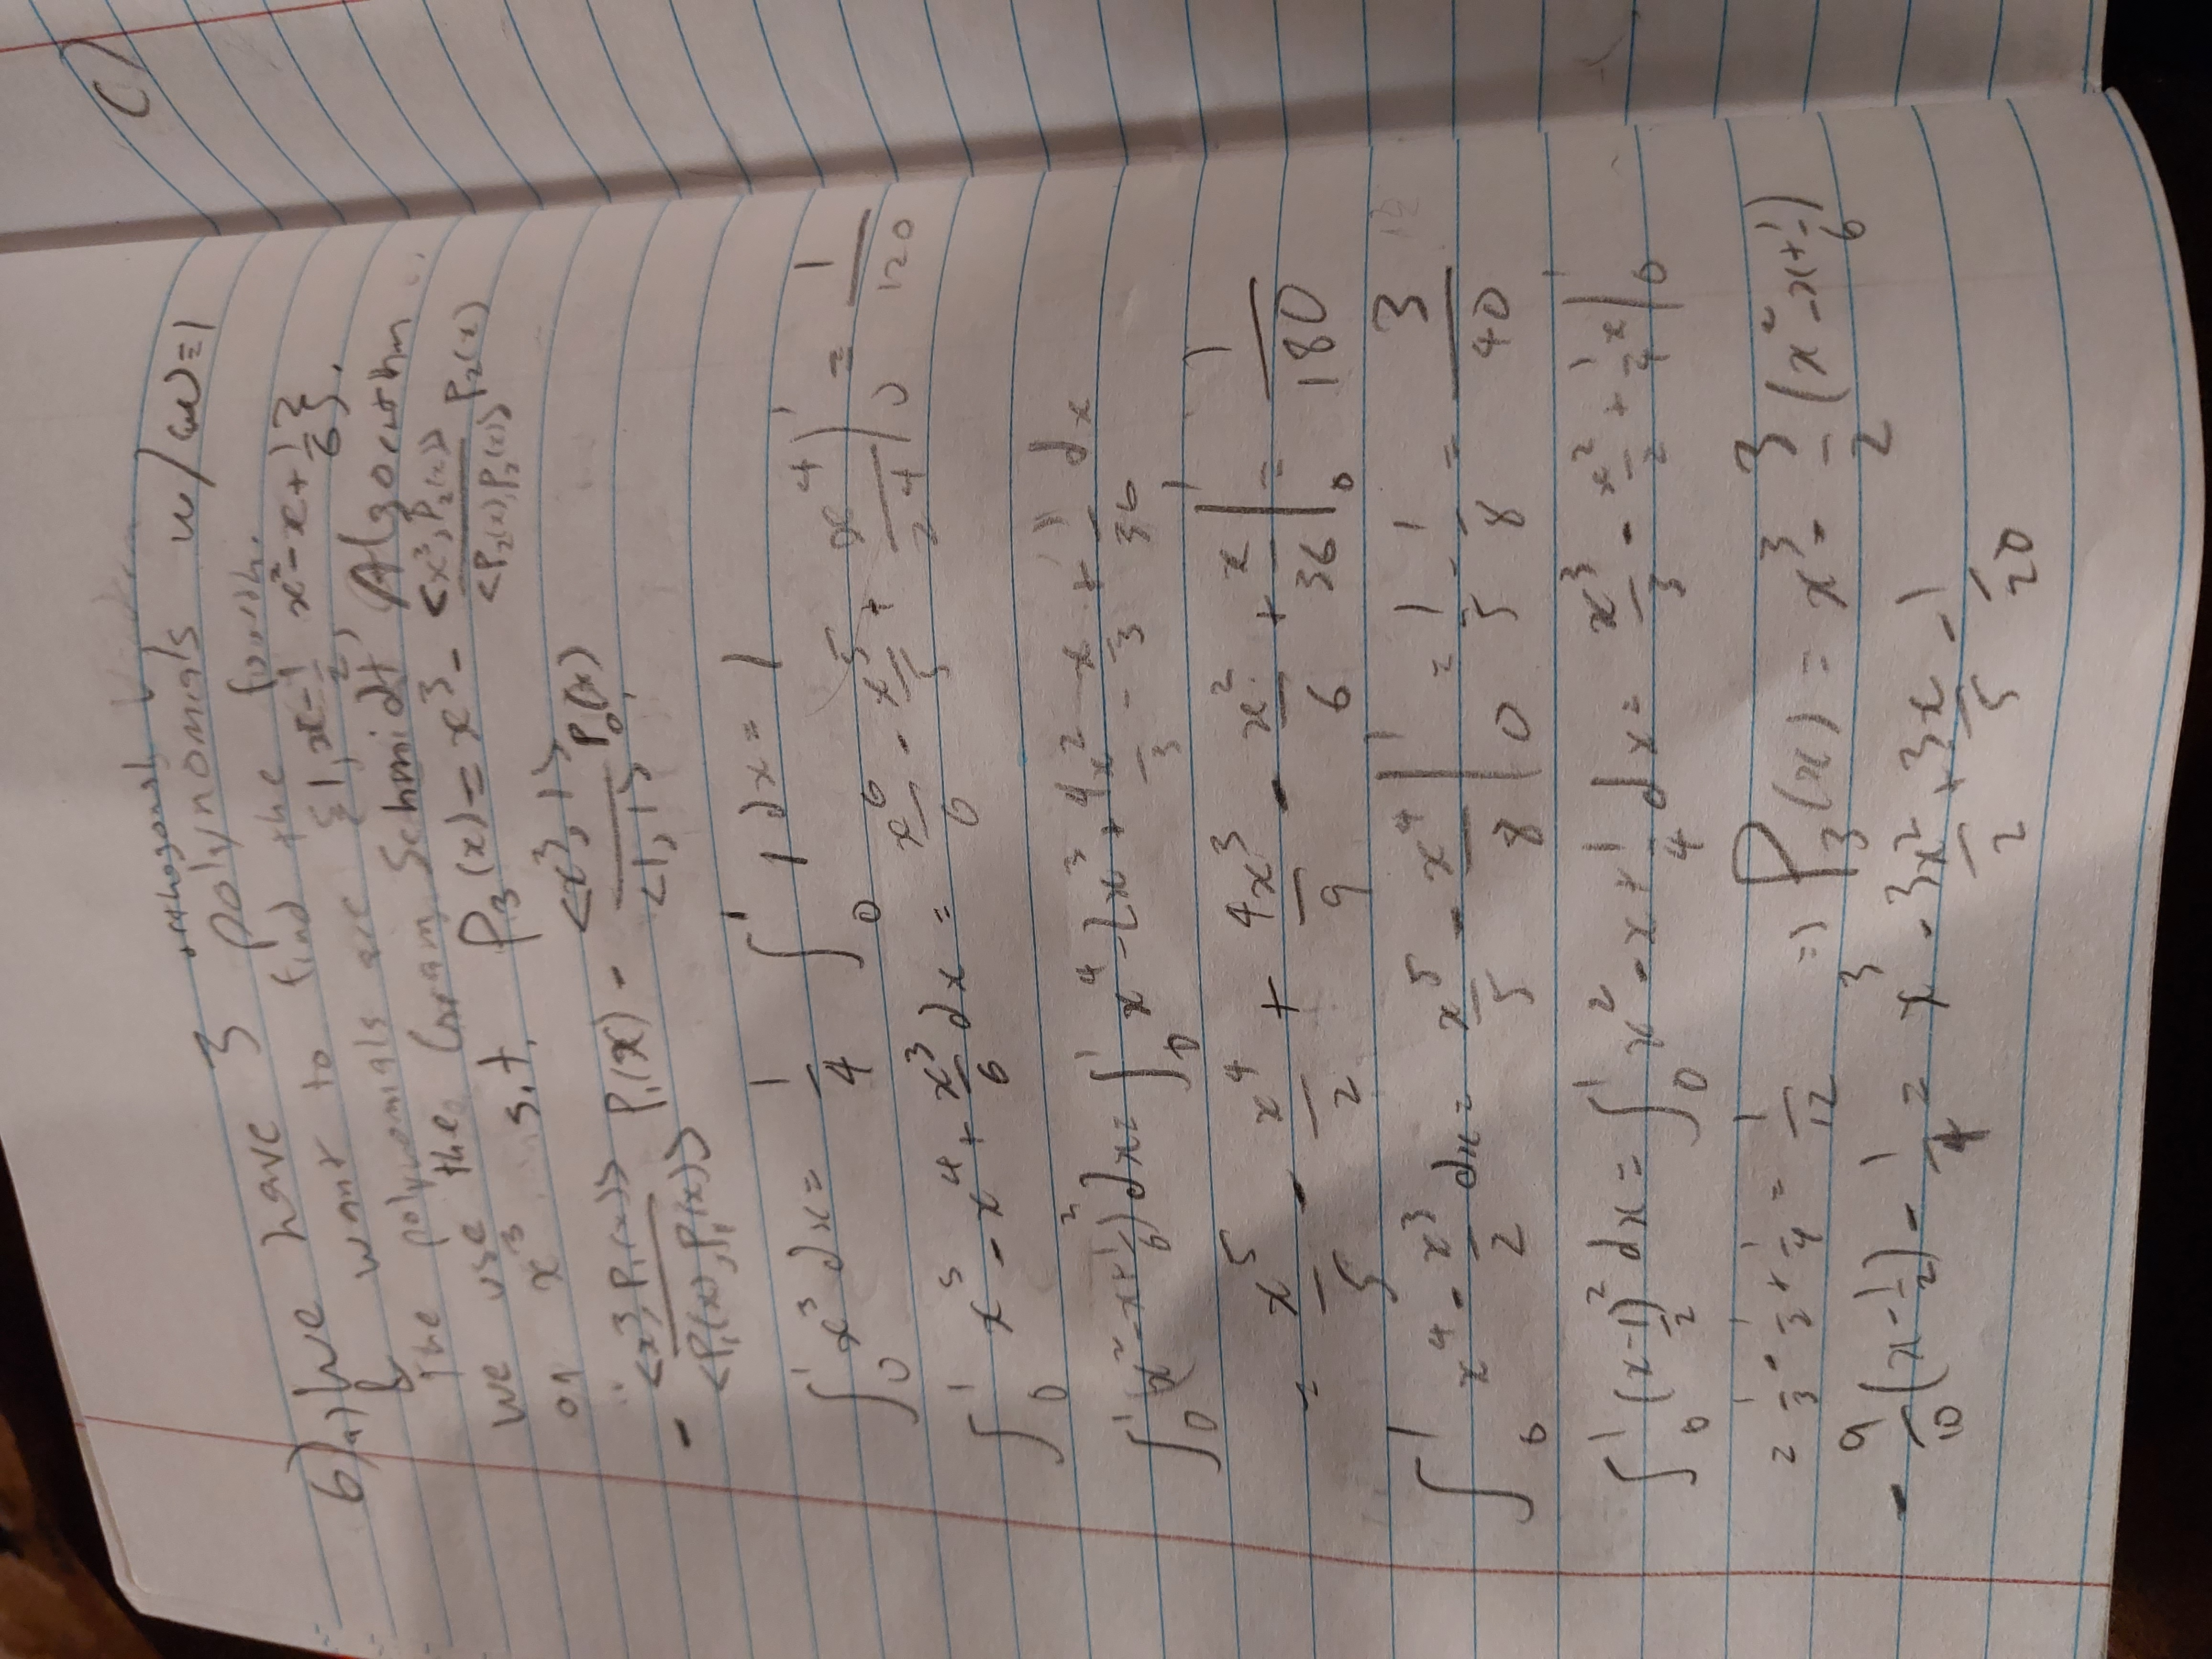 6)a) We have 3 orthogonal polynomials w/ ω(x)≡1
& want to find the fourth.
The polynomials are {1, x-1/2, x²-x+1/6}.
We use the Gram Schmidt Algorithm
on x³ s.t. P₃(x) = x³ - <x³, P₂(x)>/<P₂(x), P₂(x)> P₂(x)
- <x³, P₁(x)>/<P₁(x), P₁(x)> P₁(x) - <x³, 1>/<1, 1> P₀(x).
∫₀¹ x³ dx = 1/4 ∫₀¹ 1 dx = 1
∫₀¹ x⁵ - x⁴ + x³/6 dx = x⁶/6 - x⁵/5 + x⁴/24 |₀¹ = 1/120
∫₀¹ (x²-x+1/6)² dx = ∫₀¹ x⁴ - 2x³ + 4x²/3 - x/3 + 1/36 dx
= x⁵/5 - x⁴/2 + 4x³/9 - x²/6 + x/36 |₀¹ = 1/180
∫₀¹ x⁴ - x³/2 dx = x⁵/5 - x⁴/8 |₀¹ = 1/5 - 1/8 = 3/40
∫₀¹ (x-1/2)² dx = ∫₀¹ x² - x + 1/4 dx = x³/3 - x²/2 + 1/4 x |₀¹
= 1/3 - 1/2 + 1/4 = 1/12 => P₃(x) = x³ - 3/2 (x²-x+1/6)
- 9/10 (x-1/2) - 1/4 = x³ - 3x²/2 + 3x/5 - 1/20
c)